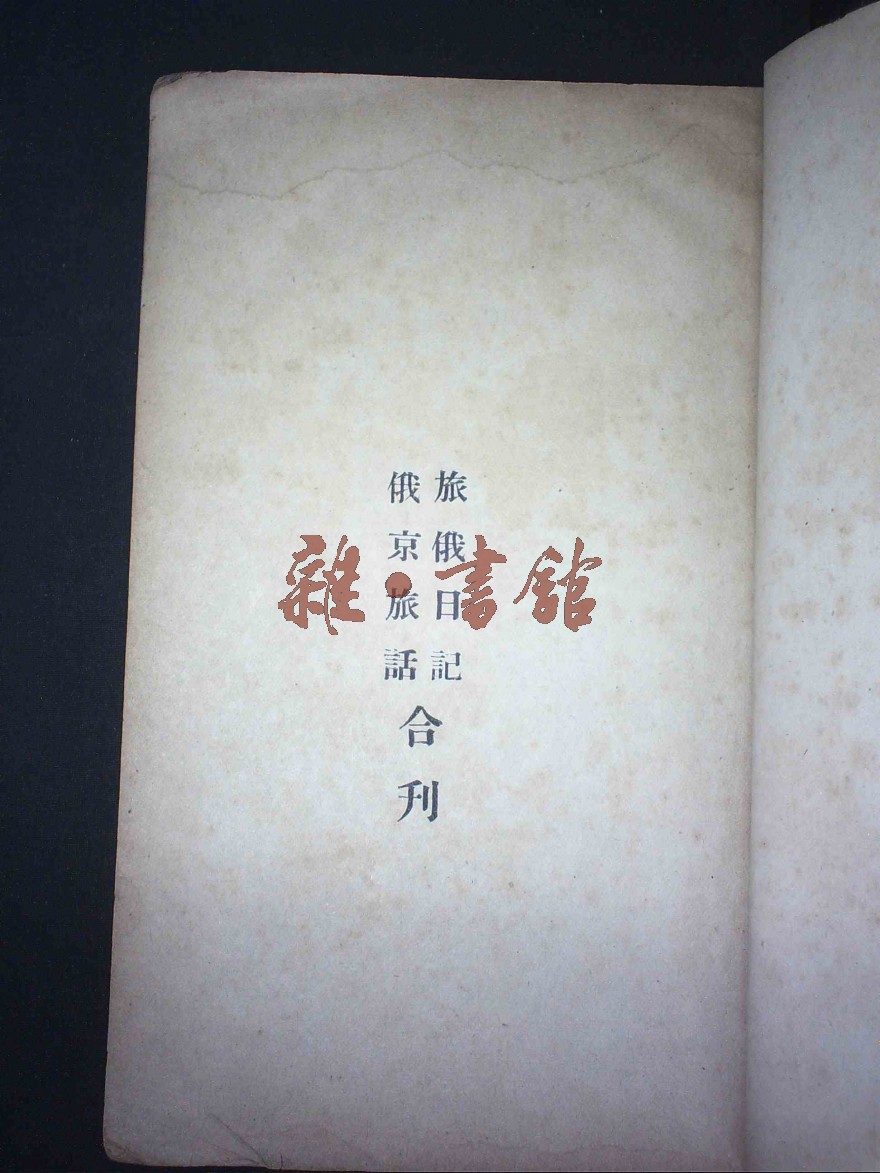 旅俄日記
俄京旅話
合刊
雜·書館